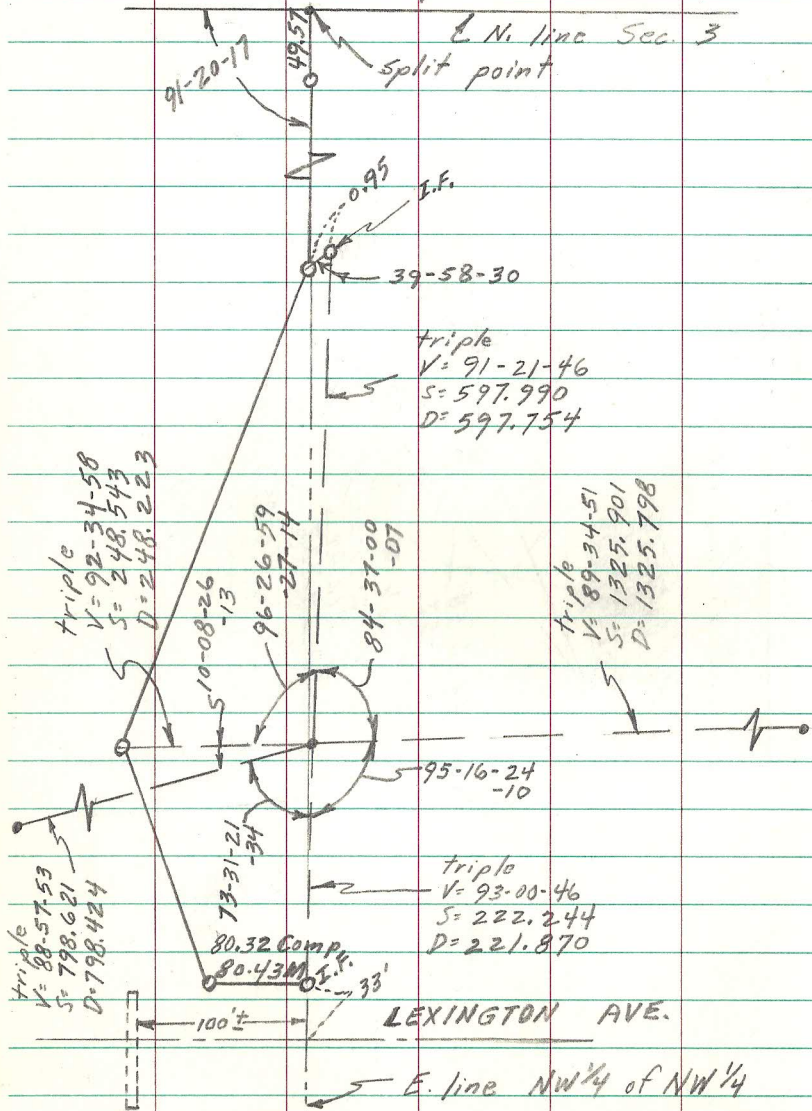 ℄ N. line Sec. 3
49.57
split point
91-20-17
0.95
I.F.
39-58-30
triple
V= 91-21-46
S= 597.990
D= 597.754
triple
V= 92-34-58
S= 248.543
D= 248.223
10-08-26
-13
96-26-59
-27-14
84-37-00
-07
triple
V= 89-34-51
S= 1325.901
D= 1325.798
95-16-24
-10
73-31-21
-34
triple
V= 88-57-53
S= 798.621
D= 798.424
triple
V= 93-00-46
S= 222.244
D= 221.870
80.32 Comp.
80.43M
I.F.
33'
100'±
LEXINGTON AVE.
E. line NW 1/4 of NW 1/4